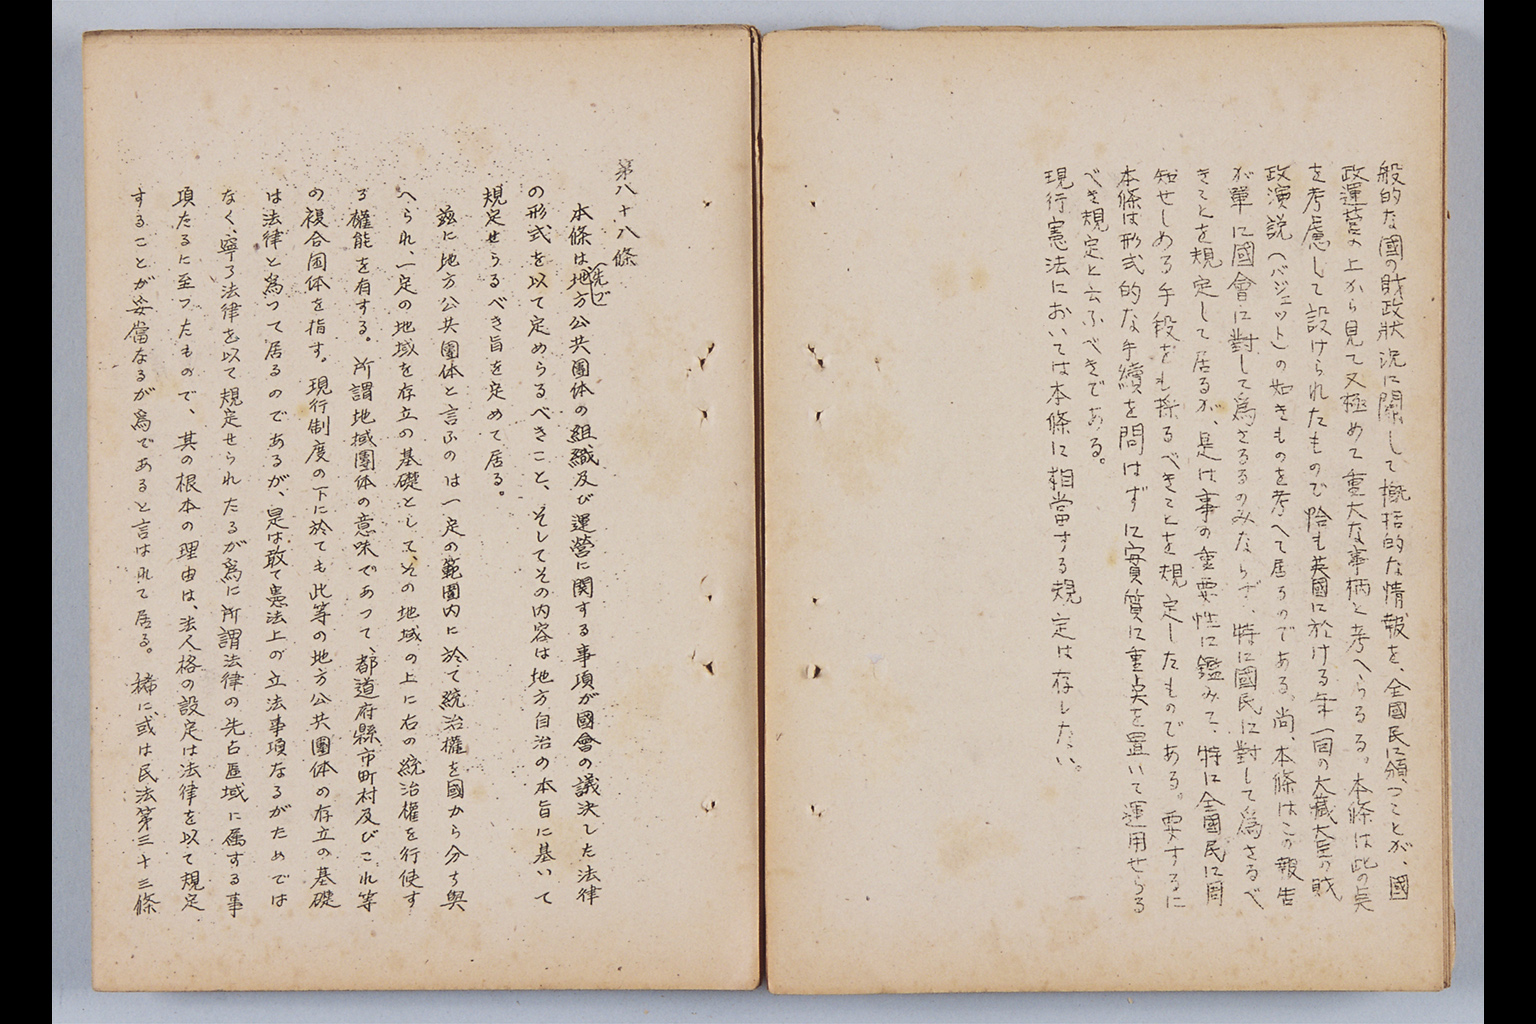 般的な國の財政狀況に關して概括的な情報を、全國民に頒つことが、國
政運営の上から見て又極めて重大な事柄と考へらるる。本條は此の点
を考慮して設けられたもので恰も英國に於ける年一回の大藏大臣の財
政演説（バジェット）の如きものを考へて居るのである。尚、本條はこの報告
が單に國會に對して爲さるるのみならず、特に國民に對して爲さるべ
きことを規定して居るが、是は事の重要性に鑑みて、特に全國民に周
知せしめる手段をも採るべきことを規定したものである。要するに
本條は形式的な手續を問はずに実質に重点を置いて運用せらる
べき規定と云ふべきである。
現行憲法においては本條に相當する規定は存しない。
第八十八條
本條は先づ地方公共團体の組織及び運営に関する事項が國會の議決した法律
の形式を以て定めらるべきこと、そしてその内容は地方自治の本旨に基いて
規定せらるべき旨を定めて居る。
茲に地方公共團体と言ふのは一定の範圍内に於て統治權を國から分ち與
へられ、一定の地域を存立の基礎として、その地域の上に右の統治權を行使す
る權能を有する。所謂地域團体の意味であつて、都道府縣市町村及びこれ等
の複合団体を指す。現行制度の下に於ても此等の地方公共團体の存立の基礎
は法律と爲つて居るのであるが、是は敢て憲法上の立法事項なるがためでは
なく、寧ろ法律を以て規定せられたるが爲に所謂法律の先占區域に属する事
項たるに至つたもので、其の根本の理由は、法人格の設定は法律を以て規定
することが妥當なるが爲であると言はれて居る。稀に、或は民法第三十三條